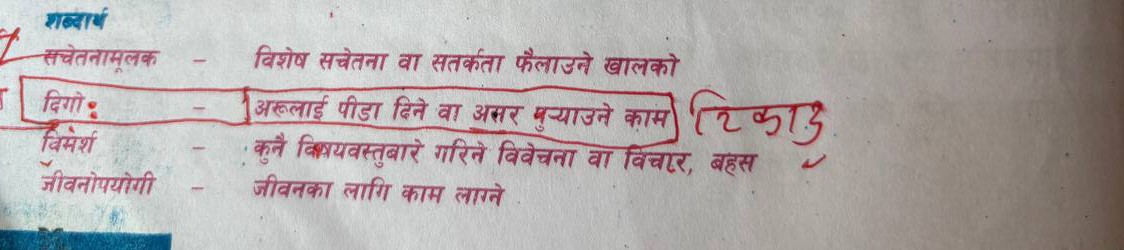 शब्दार्थ
सचेतनामूलक – विशेष सचेतना वा सतर्कता फैलाउने खालको
दिगो: – अरूलाई पीडा दिने वा असर पुर्‍याउने काम टिकाउ
विमर्श – कुनै विषयवस्तुबारे गरिने विवेचना वा विचार, बहस
जीवनोपयोगी – जीवनका लागि काम लाग्ने